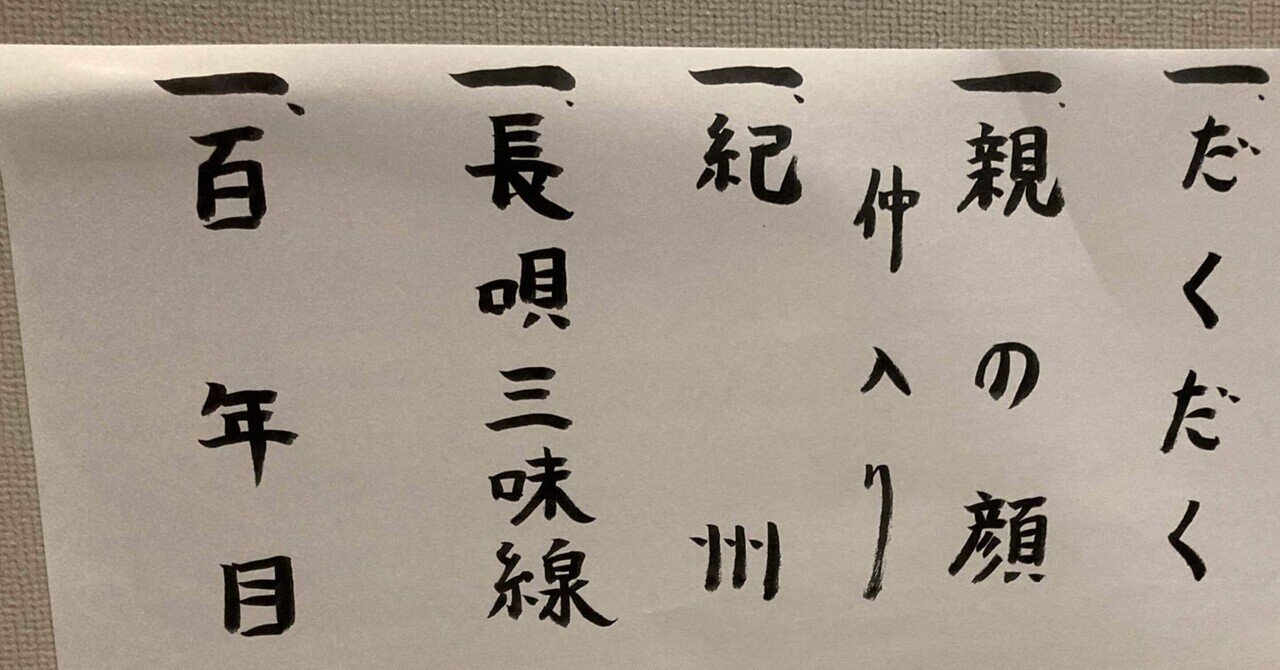 一、だくだく
一、親の顔
仲入り
一、紀州
一、長唄三味線
一、百年目